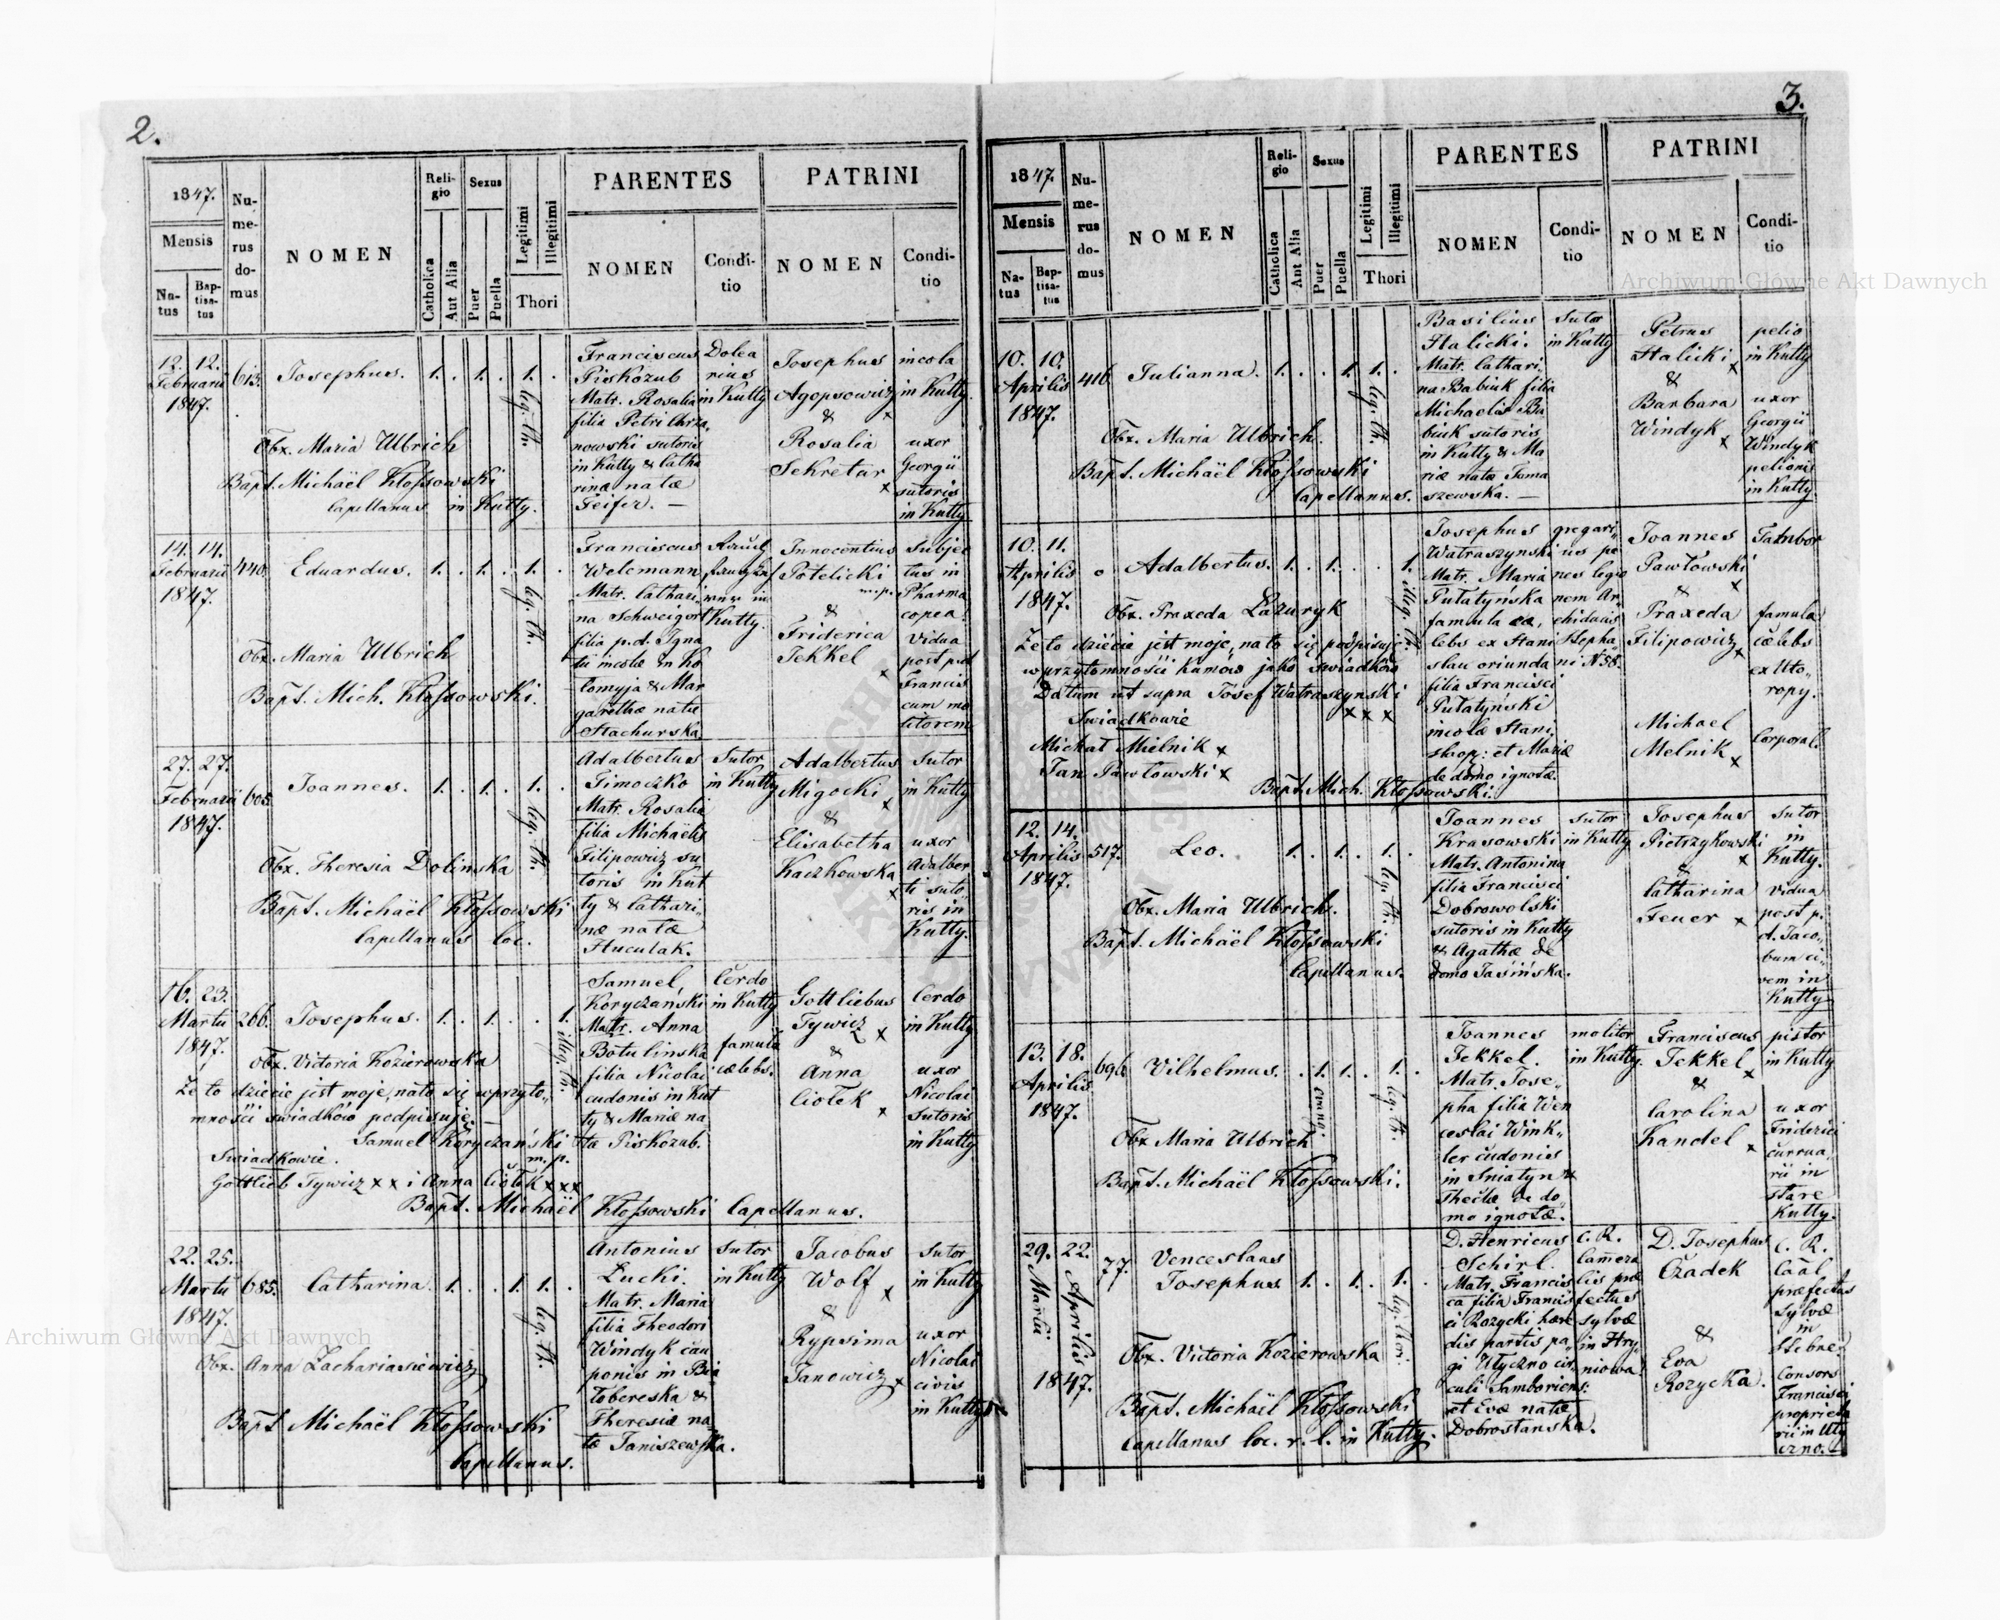 2.
1847.
Mensis
Natus
Baptisatus
Numerus domus
NOMEN
Religio
Catholica
Aut Alia
Sexus
Puer
Puella
Legitimi
Illegitimi
Thori
PARENTES
NOMEN
Conditio
PATRINI
NOMEN
Conditio
12. 12.
Februarii
1847.
613.
Josephus.
1. . 1. . 1. .
leg. th.
Obx. Maria Ulbrich
Bapt. Michaël Kłossowski
Capellanus in Kutty.
Franciscus
Piskozub
Matr. Rosalia
filia Petri Chrza,
nowski sutoris
in Kutty & Catha
rinæ natæ
Feifer. —
Dolea
rius
in Kutty
Josephus
Agopsowicz
&
x
Rosalia
Sekretar
x
incola
in Kutty.
uxor
Georgii
sutoris
in Kutty
14. 14.
Februarii
1847.
440.
Eduardus.
1. . 1. . 1. .
leg. th.
Obx. Maria Ulbrich
Bapt. Mich. Kłossowski.
Franciscus
Welemann
Matr. Cathari,
na Schweigert
filia p. d. Igna
tii incolæ in Ko
lomyja & Mar
garethæ natæ
Stachurska
in
Kutty.
Innocentius
Potelicki
m.p.
&
Friderica
Jekkel
x
Subjec
tus in
Pharma
copea.
vidua
post p.d.
Francis
cum mo
litorem
27. 27.
Februarii
1847.
605.
Joannes.
1. . 1. . 1. .
leg. th.
Obx. Theresia Dolinska
Bapt. Michaël Kłossowski
Capellanus loc.
Adalbertus
Timoczko
Matr. Rosalia
filia Michaëlis
Filipowicz su
toris in Kut
ty & Cathari,
næ natæ
Huculak.
Sutor
in Kutty
Adalbertus
Migocki
x
&
Elisabetha
Kaczkowska
x
Sutor
in Kutty
uxor
Adalber
ti suto
ris in
Kutty.
16. 23.
Martii
1847.
266.
Josephus.
1. . 1. . . 1.
illeg. th.
Obx. Victoria Kozierowska
Że to dziecie jest moje, na to się w przyto,,
mności świadków podpisuję. —
Samuel Koryczański
m. p.
Świadkowie.
Gottlieb Tywicz x x i Anna Ciołek x x x
Bapt. Michaël Kłossowski Capellanus.
Samuel,
Koryczanski
Matr. Anna
Botulinska
filia Nicolai
cudonis in Kut
ty & Mariæ na
tæ Piskozub.
Cerdo
in Kutty
famula
cælebs.
Gottliebus
Tywicz
x
&
Anna
Ciołek
x
Cerdo
in Kutty
uxor
Nicolai
Sutoris
in Kutty
22. 25.
Martii
1847.
685.
Catharina.
1. . . 1. 1. .
leg. th.
Obx. Anna Zachariasiewicz
Bapt. Michaël Kłossowski
Capellanus.
Antonius
Łucki.
Matr. Maria
filia Theodori
Windyk cau
ponis in Bia
łobereska &
Theresiæ na
tæ Janiszewska.
Sutor
in Kutty
Jacobus
Wolf
x
&
Rypsima
Janowicz x
Sutor
in Kutty
uxor
Nicolai
civis
in Kutty
3.
1847.
Mensis
Natus
Baptisatus
Numerus domus
NOMEN
Religio
Catholica
Aut Alia
Sexus
Puer
Puella
Legitimi
Illegitimi
Thori
PARENTES
NOMEN
Conditio
PATRINI
NOMEN
Conditio
10. 10.
Aprilis
1847.
416.
Julianna.
1. . . 1. 1. .
leg. th.
Obx. Maria Ulbrich.
Bapt. Michaël Kłossowski
Capellanus.
Basilius
Halicki.
Matr. Cathari,
na Babiuk filia
Michaelis Ba
biuk sutoris
in Kutty & Ma
riæ natæ Toma
szewska. —
Sutor
in Kutty
Petrus
Halicki
x
&
Barbara
Windyk
x
pelio
in Kutty
uxor
Georgii
Windyk
pelionis
in Kutty
10. 11.
Aprilis
1847.
o
Adalbertus.
1. . 1. . . 1.
illeg. th.
Obx. Praxeda Lazuryk
Że to dziécie jest moje, na to się podpisuję
w przytomności kumów jako świadków
Datum ut supra Josef Watraszynski
x x x
Swiadkowie
Michał Mielnik x
Jan Pawłowski x
Bapt. Mich. Kłossowski.
Josephus
Watraszynski
Matr. Maria
Putatyńska
famula cæ,
lebs ex Stani
slau oriunda
filia Francisci
Putatyński
incolæ Stani,
slaop: et Mariæ
de domo ignotæ.
gregari,,
us pe
nes legio
nem Ar,
chiducis
Stepha
ni N. 58.
Joannes
Pawłowski
x
&
Praxeda
Filipowicz
x
Michael
Melnik
x
Tambor
famula
cælebs
ex Uto,,
ropy.
Corporal.
12. 14.
Aprilis
1847.
517.
Leo.
1. . 1. . 1. .
leg. th.
Obx. Maria Ulbrich.
Bapt. Michaël Kłossowski
Capellanus.
Joannes
Krasowski
Matr. Antonina
filia Francisci
Dobrowolski
sutoris in Kutty
& Agathæ de
domo Jasińska.
Sutor
in Kutty
Josephus
Pietrzykowski
x
&
Catharina
Feuer x
Sutor
in
Kutty.
vidua
post p.
d. Jaco,,
bum ci,,
vem in
Kutty
13. 18.
Aprilis
1847.
696.
Vilhelmus.
. 1. 1. . 1. .
evang.
leg. th.
Obx Maria Ulbrich
Bapt. Michaël Kłossowski.
Joannes
Jekkel.
Matr. Jose,
pha filia Wen
ceslai Wink,,
ler cudonis
in Sniatyn &
Theclæ de do,
mo ignotæ.
molitor
in Kutty.
Franciscus
Jekkel
x
&
Carolina
Kandel
x
pistor
in Kutty
uxor
Friderici
currua,
rii in
stare
Kutty.
29. 22.
Martii
Aprilis
1847.
77.
Venceslaus
Josephus
1. . 1. . 1. .
leg. thori
Obx. Victoria Kozierowska
Bapt. Michaël Kłossowski
Capellanus loc. r. l. in Kutty.
D. Henricus
Schirl.
Matr. Francis
ca filia Francis
ci Rozycki hære
dis partis pa,,
gi Utyczno cir,
culi Samboriens:
et Evæ natæ
Dobrostanska.
C. R.
Camera
lis præ
fectus
sylvæ
in Hry,
niowa.
D. Josephus
Czadek
&
Eva
Rozycka.
C. R.
Caal
præfectus
sylvæ
in
Stebne.
Consors
Francisci
proprieta
rii in Uty
czno.
Archiwum Główne Akt Dawnych
Archiwum Główne Akt Dawnych